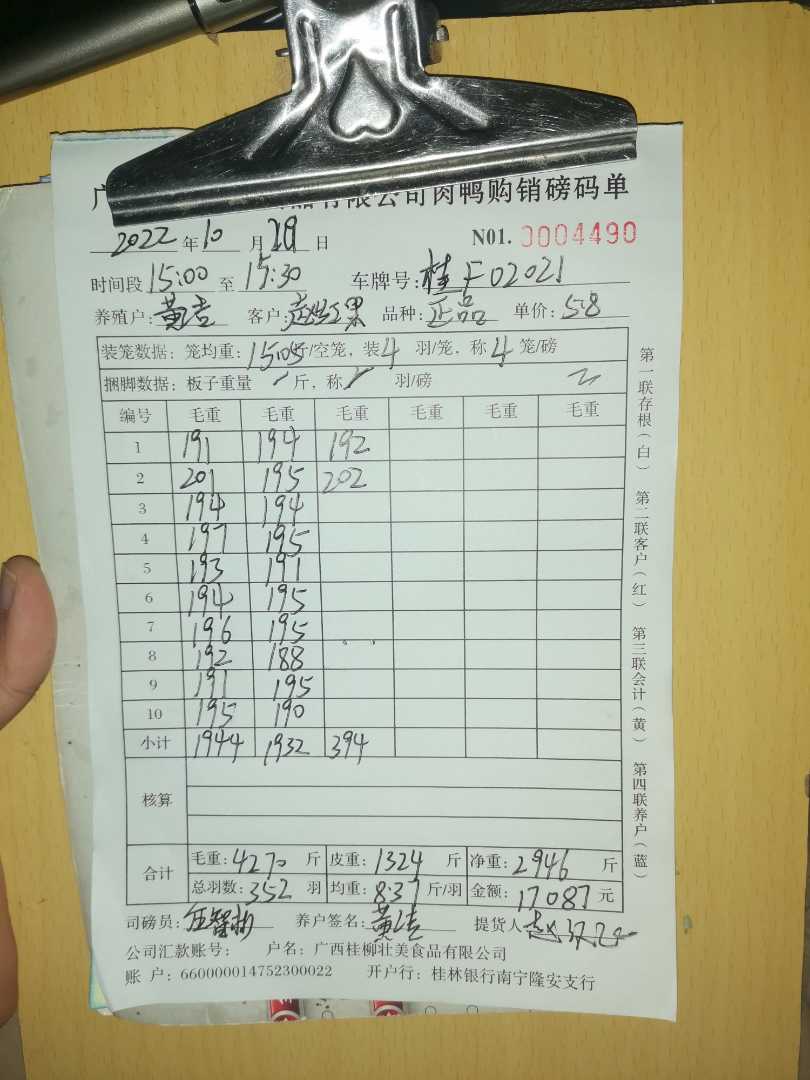 广 品有限公司肉鸭购销磅码单
2022年10月29日 N01. 0004490
时间段 15:00 至 17:30 车牌号: 桂F02021
养殖户: 黄吉 客户: 品种: 正品 单价: 5.8
装笼数据: 笼均重: 15.05 斤/空笼, 装 4 羽/笼, 称 4 笼/磅
捆脚数据: 板子重量 / 斤, 称 / 羽/磅
编号 毛重 毛重 毛重 毛重 毛重 毛重
1 191 194 192
2 201 195 202
3 194 194
4 197 195
5 193 191
6 194 195
7 196 195
8 192 188
9 191 195
10 195 190
小计 1944 1932 394
核算
合计 毛重: 4270 斤 皮重: 1324 斤 净重: 2946 斤
总羽数: 352 羽 均重: 8.37 斤/羽 金额: 17087 元
司磅员: 养户签名: 提货人
公司汇款账号: 户名: 广西桂柳壮美食品有限公司
账 户: 660000014752300022 开户行: 桂林银行南宁隆安支行
第一联存根(白) 第二联客户(红) 第三联会计(黄) 第四联养户(蓝)